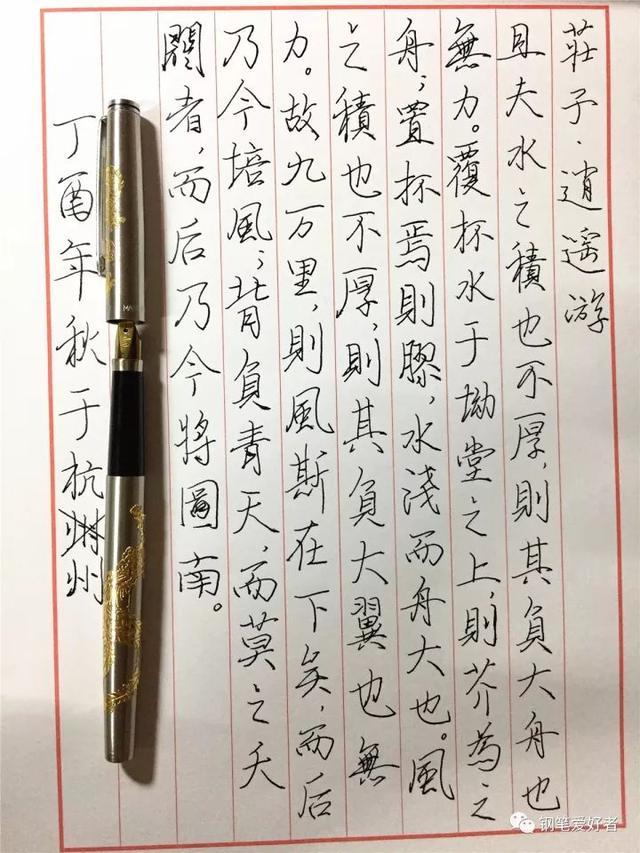 莊子·逍遥游
且夫水之積也不厚,則其負大舟也
無力。覆杯水于坳堂之上,則芥為之
舟;置杯焉則膠,水淺而舟大也。風
之積也不厚,則其負大翼也無
力。故九万里,則風斯在下矣,而后
乃今培風;背負青天,而莫之夭
閼者,而后乃今將圖南。
丁酉年秋于杭州
钢笔爱好者